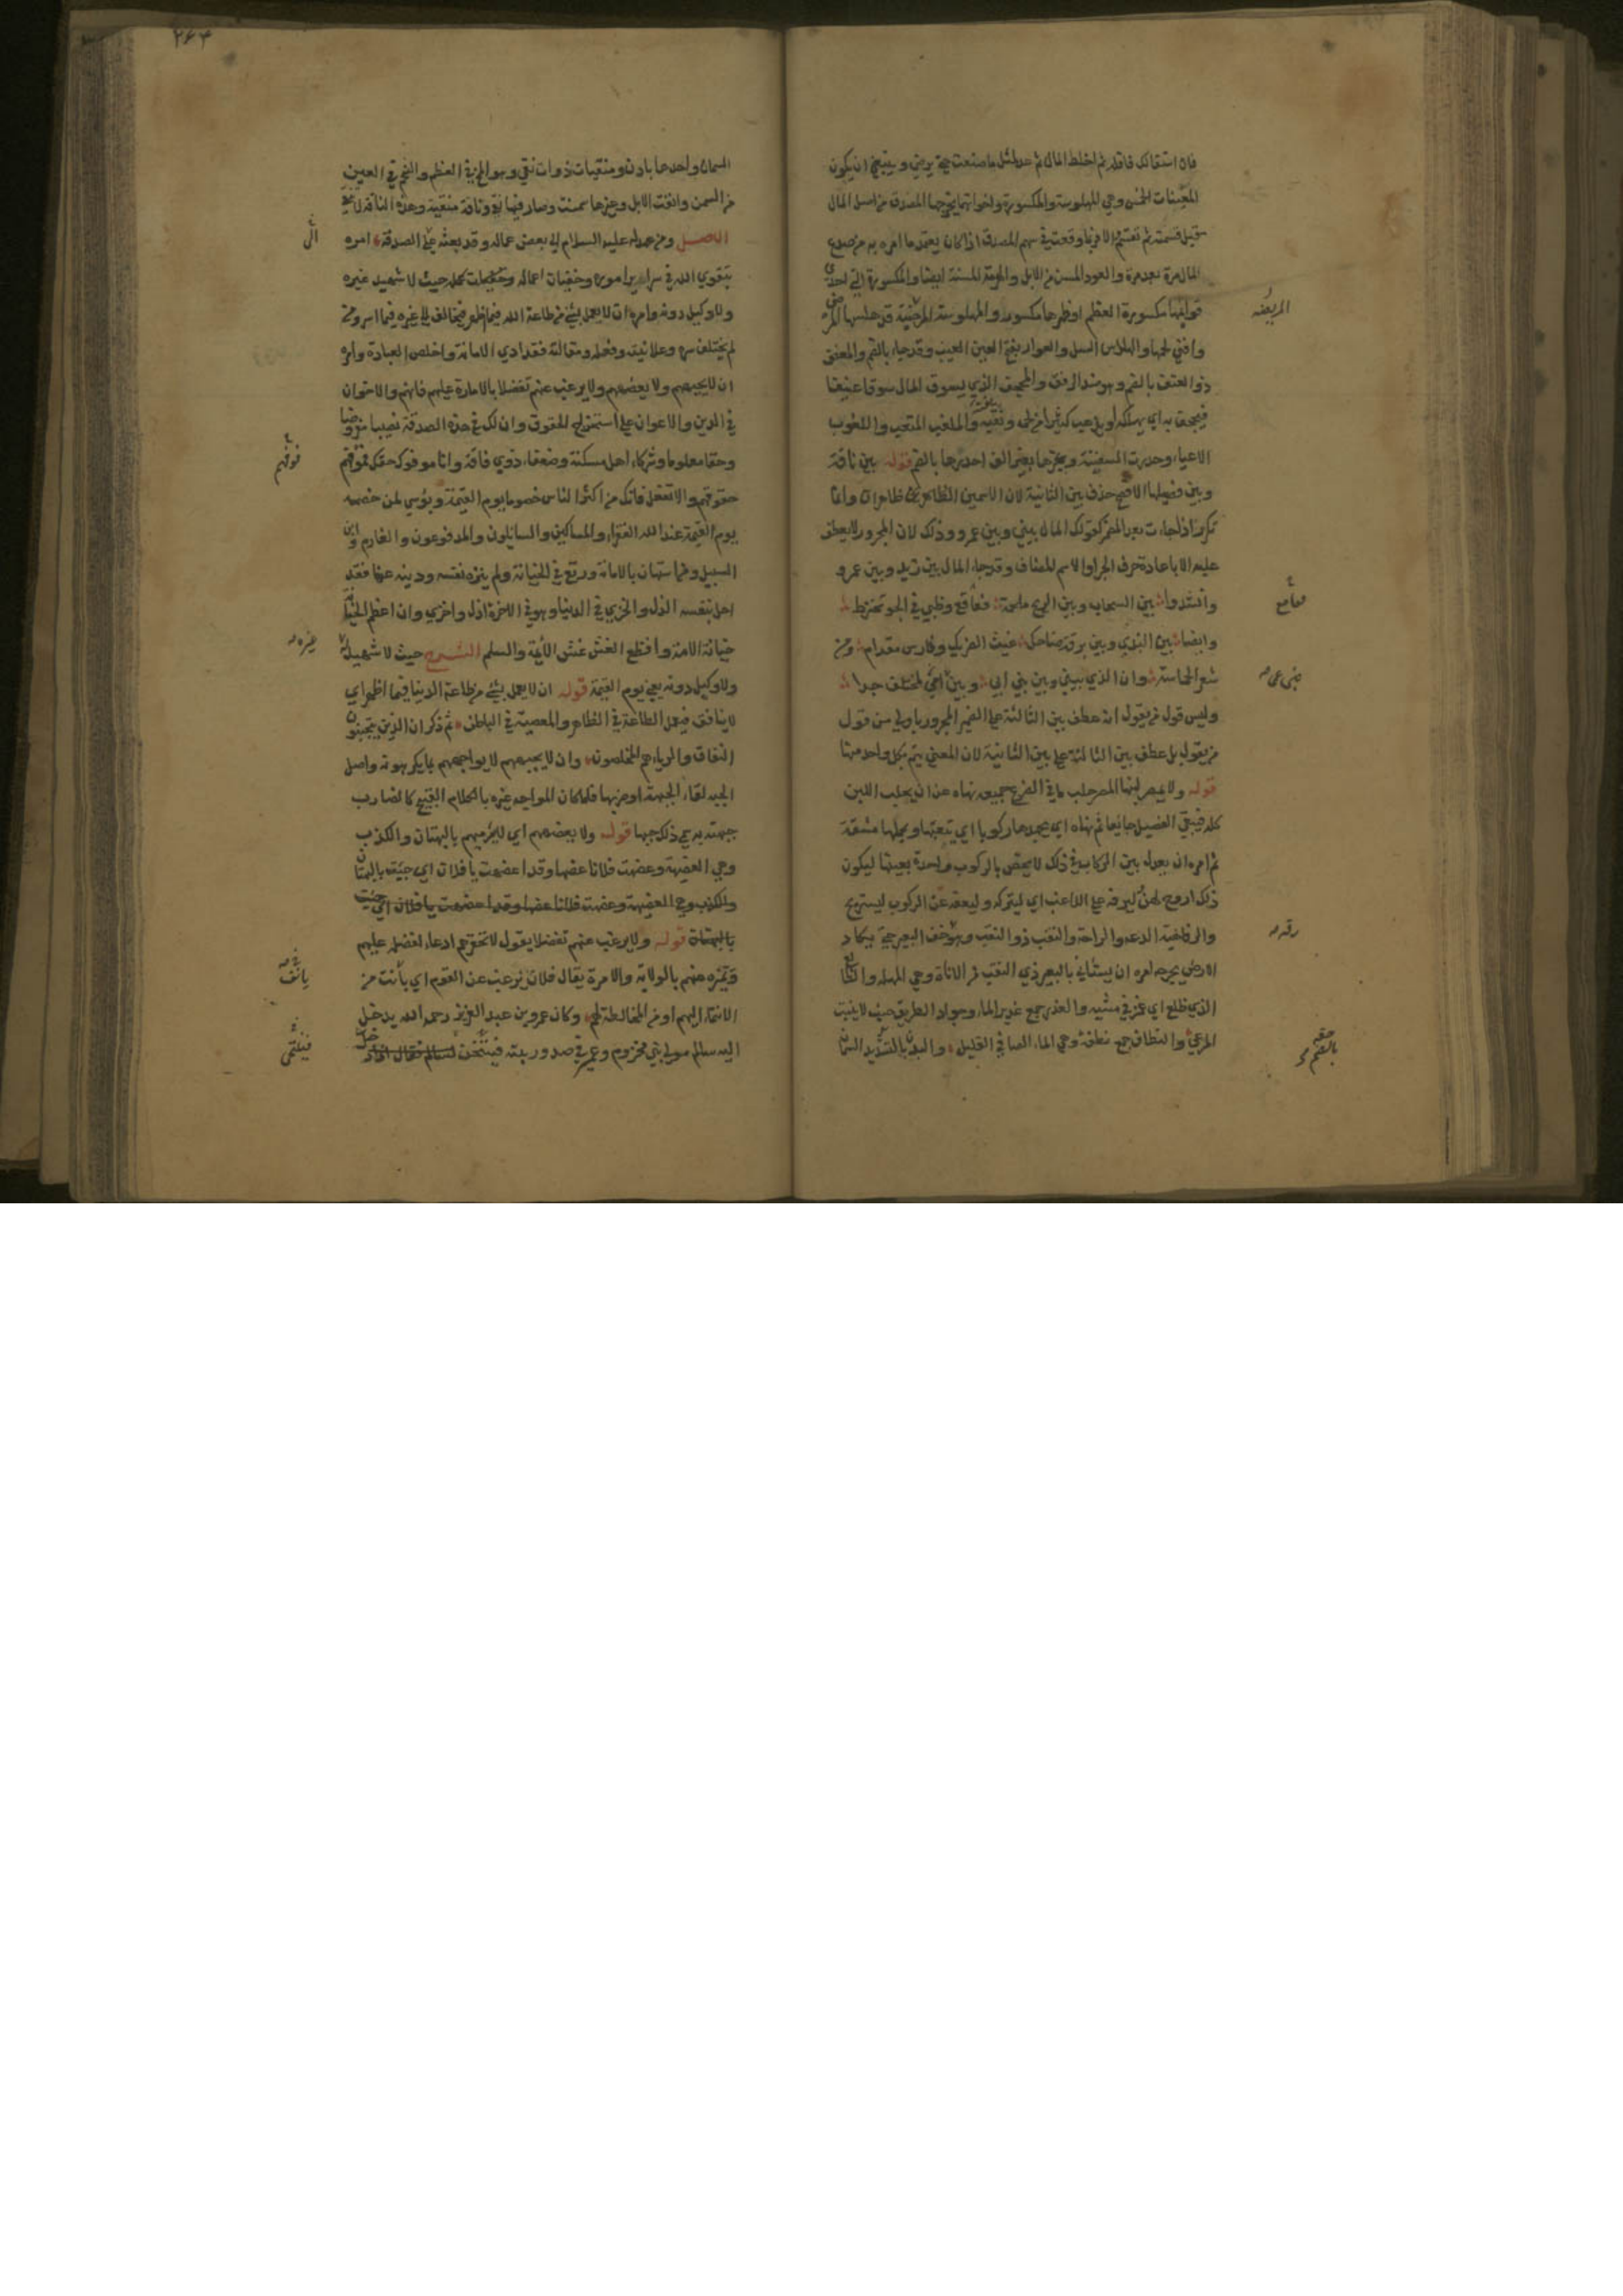 فان استقالك فاقله ثم اخلط المال ثم عد لمثل ما صنعت حتى يرضى وينبغي ان يكون
المعيبات الخمس وهي المهلوسة والمكسورة واخواتهما يخرجها المصدق من اصل المال
قبل قسمته ثم تقسم والا فربما وقعت في سهم المصدق اذا كان يعتمد ما امره به من صدع
المال مرة بعد مرة والعود المسن من الابل والهرمة المسنة ايضا والمكسورة التي احدى
قوائمها مكسورة العظم او ظهرها مكسور والمهلوسة المريضة قد هلسها المرض
وافنى لحمها والهلاس السل والعوار بفتح العين العيب وقد جاء بالضم والمعنف
ذو العنف بالضم وهو ضد الرفق والمجحف الذي يسوق المال سوقا عنيفا
فيجحف به اي يهلكه او يذهب كثيرا من لحمه ونقيه والملغب المتعب واللغوب
الاعياء وحدرت السفينة وغيرها بغير الف احدرها بالضم قوله بين ناقة
وبين فصيلها الافصح حذف بين الثانية لان الاسمين الظاهرين ظاهران وانما
تكرر اذا جاءت بعد المضمر كقولك المال بيني وبين عمرو وذلك لان المجرور لا يعطف
عليه الا باعادة حرف الجر او الاسم المضاف وقد جاء المال بين زيد وبين عمرو
وانشدوا بين السحاب وبين الريح ملحمة قعاقع وظبى في الجو تخترط
وايضا بين الندي وبين برقة ضاحك غيث الضريك وفارس مقدام ومن
شعر الحماسة وان الذي بيني وبين بني ابي وبين بني عمي لمختلف جدا
وليس قول من يقول انه عطف بين الثالثة على الضمير المجرور باولى من قول
من يقول بل عطف بين الثالثة على بين الثانية لان المعنى يتم بكل واحد منهما
قوله ولا يمصر لبنها المصر حلب ما في الضرع جميعه نهاه عن ان يحلب اللبن
كله فيبقى الفصيل جائعا ثم نهاه ان يجهدها ركوبا اي يتعبها ويحملها مشقة
ثم امره ان يعدل بين الركاب في ذلك لا يخص بالركوب واحدة بعينها ليكون
ذلك اروح لهن ليرفه على اللاغب اي ليتركه وليعفه عن الركوب ليستريح
والرفاهية الدعة والراحة والنقب ذو النقب وهو خف البعير حتى يكاد
الارض يجرحه امره ان يستأني بالبعير ذي النقب من الاناة وهي المهلة والظالع
الذي ظلع اي غمز في مشيه والغدر جمع غدير الماء وجواد الطريق حيث لا ينبت
المرعى والنطاف جمع نطفة وهي الماء الصافي القليل والبدن بالتشديد السمان
المريضه
قعاقع
بنى عمى
رقه
بالضم
٢٦٤
السمان واحدها بادن ومنقيات ذوات نقي وهو المخ في العظم والشحم في العين
من السمن وانقت الابل وغيرها سمنت وصار فيها نقي وناقة منقية وهذه الناقة لا تنقي
الاصل ومن عهد له عليه السلام الى بعض عماله وقد بعثه على الصدقة امره
بتقوى الله في سرائر اموره وخفيات اعماله حيث لا شهيد غيره
ولا وكيل دونه وامره ان لا يعمل بشيء من طاعة الله فيما ظهر فيخالف الى غيره فيما اسر ومن
لم يختلف سره وعلانيته وفعله ومقالته فقد ادى الامانة واخلص العبادة وامره
ان لا يجبههم ولا يعضههم ولا يرغب عنهم تفضلا بالامارة عليهم فانهم والاخوان
في الدين والاعوان على استخراج الحقوق وان لك في هذه الصدقة نصيبا مفروضا
وحقا معلوما وشركاء اهل مسكنة وضعفاء ذوي فاقة وانا موفوك حقك فوفهم
حقوقهم والا تفعل فانك من اكثر الناس خصوما يوم القيمة وبؤسى لمن خصمه
يوم القيمة عند الله الفقراء والمساكين والسائلون والمدفوعون والغارم وابن
السبيل ومن استهان بالامانة ورتع في الخيانة ولم ينزه نفسه ودينه عنها فقد
احل بنفسه الذل والخزي في الدنيا وهو في الاخرة اذل واخزى وان اعظم الخيانة
خيانة الامة وافظع الغش غش الأئمة والسلم الشرح حيث لا شهيد
ولا وكيل دونه يعني يوم القيمة قوله ان لا يعمل بشيء من طاعة الدنيا فيما اظهر اي
لا ينافق فيعمل الطاعة في الظاهر والمعصية في الباطن ثم ذكر ان الذين يتجنبون
النفاق والرياء هم المخلصون وان لا يجبههم لا يواجههم بما يكرهونه واصل
الجبه لقاء الجبهة او ضربها فلما كان المواجه غيره بالكلام القبيح كالضارب
جبهته به سمى ذلك جبها قوله ولا يعضههم اي لا يرميهم بالبهتان والكذب
وهي العضيهة وعضهت فلانا عضها وقد اعضهت يا فلان اي جئت بالبهتان
والكذب وهي العضيهة وعضهت فلانا عضها وقد اعضهت يا فلان اي جئت
بالبهتان قوله ولا يرغب عنهم تفضلا يقول لا تحقرهم ادعاء لفضله عليهم
وتميزه عنهم بالولاية والامرة يقال فلان يرغب عن القوم اي يأنف من
الانتماء اليهم او من المخالطة لهم وكان عمر بن عبد العزيز رحمه الله يدخل
اليه سالم مولى بني مخزوم وعمر في صدر بيته فيتنحى
الى
فوفهم
غيره
يانف